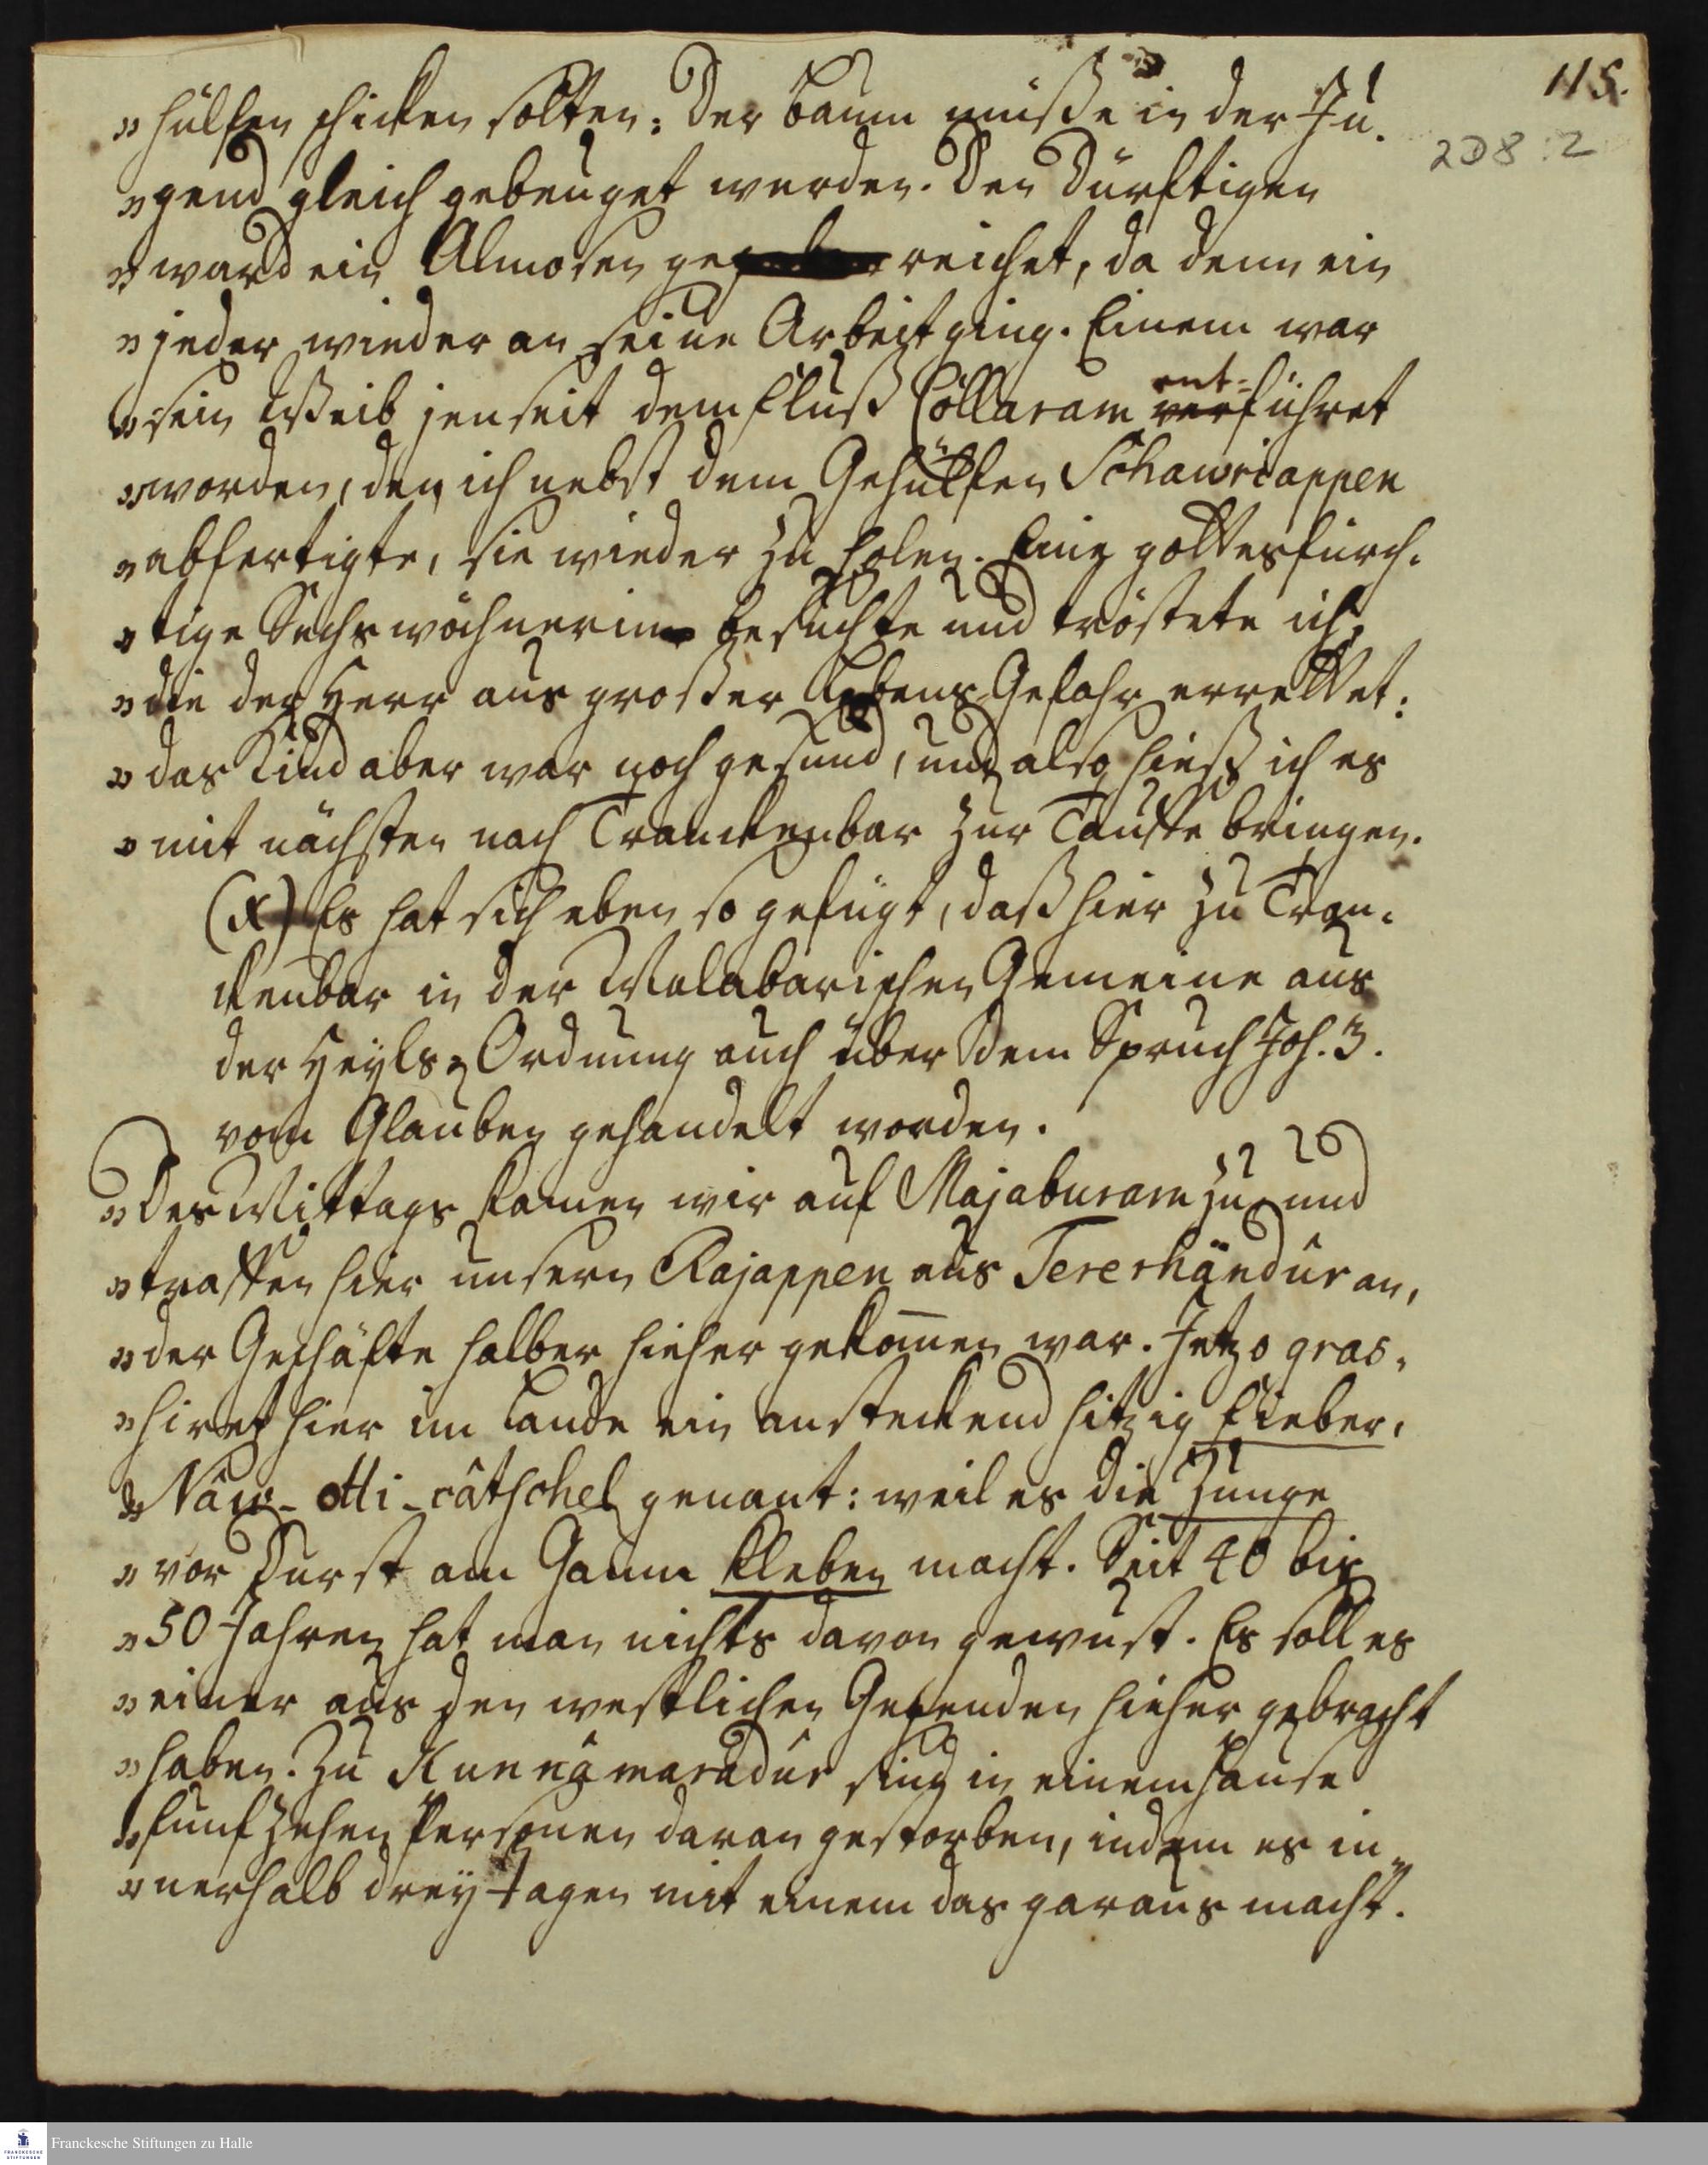 115.
2D8:2
„hülfen schicken solten: Der Baum müße in der Ju-
„gend gleich gebeuget werden. Den Dürftigen
„ward ein Almosen gereichet, da denn ein
„jeder wieder an seine Arbeit ging. Einem war
„sein Weib jenseit dem Fluß Cöllaram ver ent=führet
„worden, den ich nebst dem Gehülfen Schawriappen
„abfertigte, sie wieder zu holen. Eine gottesfürch-
„tige Sechswöchnerin besuchte und tröstete ich,
„die der Herr aus großer Lebens Gefahr errettet:
„das Kind aber war noch gesund, und also hieß ich es
„mit nächsten nach Tranckenbar zur Tauffe bringen.
(x) Es hat sich eben so gefügt, daß hier zu Tran-
ckenbar in der Malabarischen Gemeine aus
der Heyls-Ordnung auch über dem Spruch Joh. 3.
vom Glauben gehandelt worden.
„Des Mittags kamen wir auf Majaburam zu und
„traffen hier unsern Rajappen aus Tererhändûr an,
„der Geschäfte halber hieher gekom̅en war. Jetzo gras-
„hiret hier im Lande ein ansteckend hitzig Fieber,
„Nâw-otti-câtschel genant: weil es die Zunge
„vor Durst am Gaum kleben macht. Seit 40 bis
„50 Jahren hat man nichts davon gewust. Es soll es
„einer aus den westlichen Gegenden hieher gebracht
„haben. Zu Kunnâmaradûr sind in einem Hause
„funfzehen Personen daran gestorben, indem es in-
„nerhalb drey Tagen mit einem das garaus macht.
Franckesche Stiftungen zu Halle
FRANCKESCHE
STIFTUNGEN